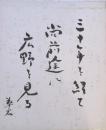 三十年を経て
尚前途に
広野を見る